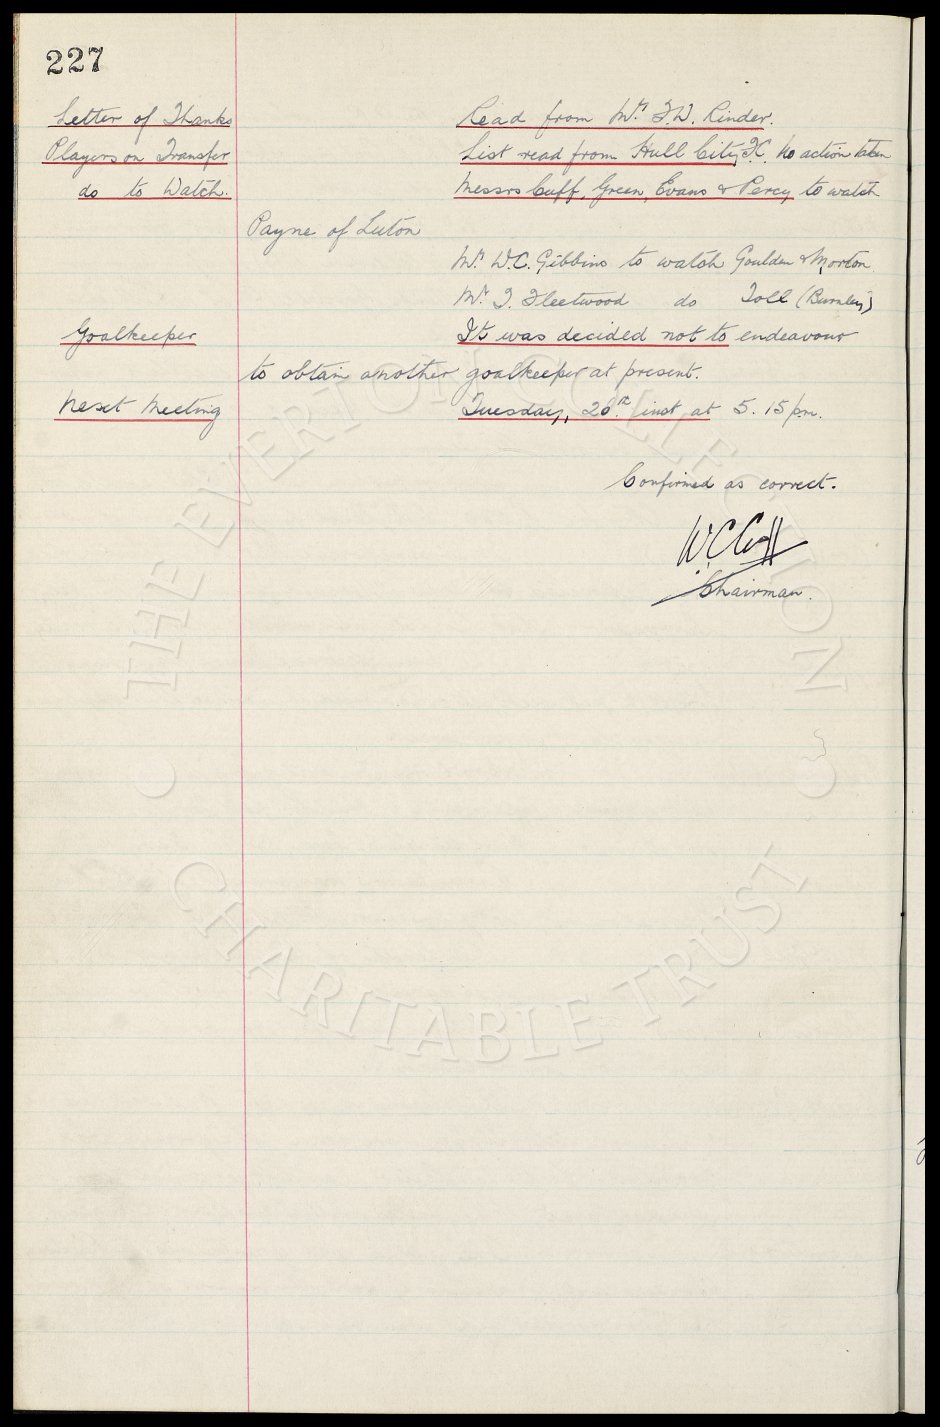 227
Letter of Thanks Read from Mr. F.W. Rinder.
Players on Transfer List read from Hull City F.C. No action taken
do to Watch. Messrs Cuff, Green, Evans & Percy to watch
Payne of Luton
Mr. W.C. Gibbins to watch Goulden & Morton
Mr. T. Fleetwood do Toll (Burnley)
Goalkeeper It was decided not to endeavour
to obtain another goalkeeper at present.
Next Meeting Tuesday, 28th inst at 5.15 p.m.
Confirmed as correct.
W.C. Cuff
Chairman.
THE EVERTON COLLECTION
CHARITABLE TRUST